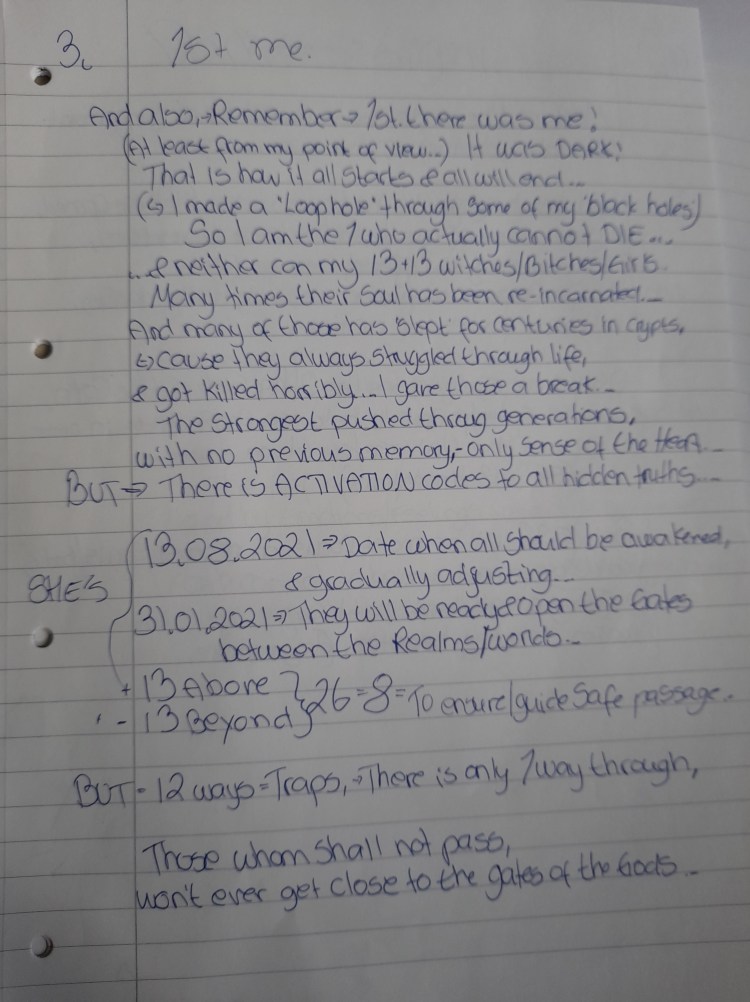 3. 1st me.
And also, → Remember → 1st. there was me!
(At least from my point of view...) It was DARK!
That is how it all starts & all will end...
(↳ I made a 'Loophole' through some of my 'black holes)
So I am the 1 who actually cannot DIE...
...& neither can my 13+13 witches/Bitches/Girls.
Many times their soul has been re-incarnated...
And many of those has slept for centuries in crypts,
↳ cause they always struggled through life,
& got killed horribly... I gave those a break...
The strongest pushed throug generations,
with no previous memory,- only sense of the Heart...
BUT → There is ACTIVATION codes to all hidden truths...
13.08.2021 → Date when all should be awakened,
& gradually adjusting...
SHE'S
31.01.2021 → They will be ready & open the Gates
between the Realms/words...
+ 13 Above } 26 = 8 = To ensure/guide safe passage.
- 13 Beyond }
BUT - 12 ways = Traps, → There is only 1 way through,
Those whom shall not pass,
won't ever get close to the gates of the Gods...